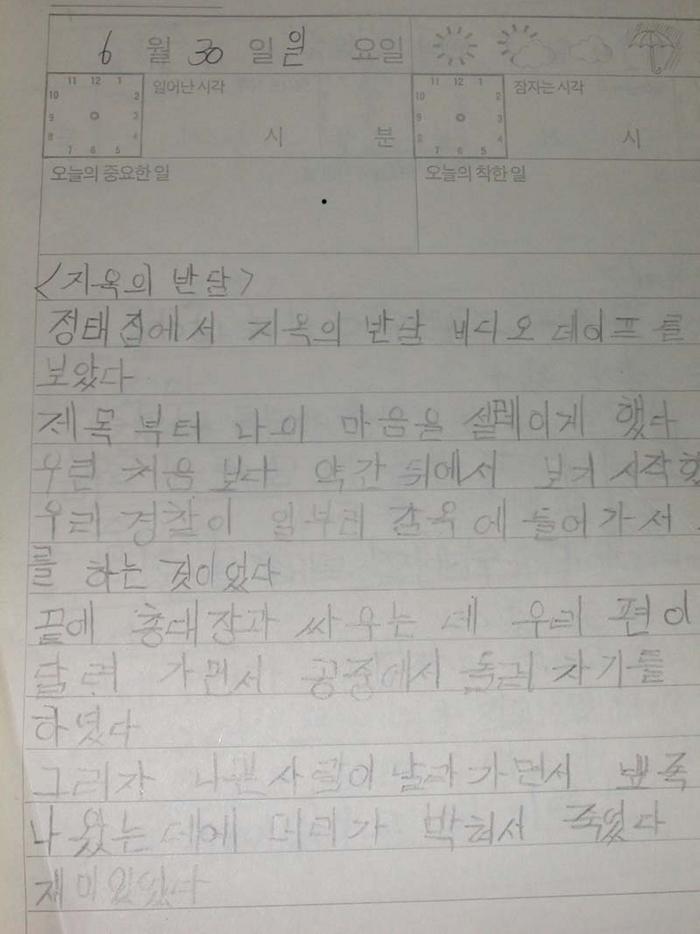 6 월 30 일 일 요일
11 12 1
10 2
9 3
8 4
7 6 5
일어난 시각
시 분
11 12 1
10 2
9 3
8 4
7 6 5
잠자는 시각
시
오늘의 중요한 일
오늘의 착한 일
<지옥의 반달>
정태 집에서 지옥의 반달 비디오 테이프를
보았다
제목 부터 나의 마음을 설레이게 했다
우린 처음 보다 약간 뒤에서 보기 시작했
우리 경찰이 일부러 감옥에 들어가서
를 하는 것이었다
끝에 총대장과 싸우는 데 우리 편이
달려 가면서 공중에서 돌려 차기를
하였다
그러자 나쁜사람이 날라가면서 뾰족
나왔는데에 머리가 박혀서 죽었다
재미있었다